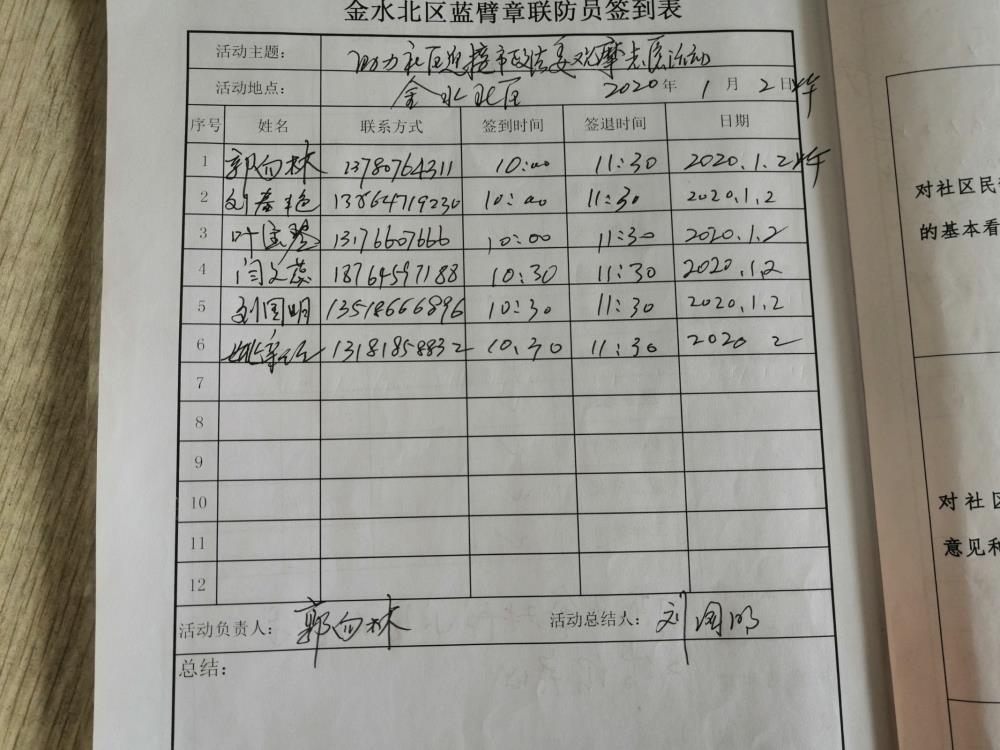 金水北区蓝臂章联防员签到表
活动主题: 助力社区迎接市政法委观摩志愿活动
活动地点: 金水北区 2020年1月2日 上午
序号 姓名 联系方式 签到时间 签退时间 日期
1 郭向林 13780764311 10:00 11:30 2020.1.2 上午
2 刘春艳 13864719230 10:00 11:30 2020.1.2
3 13176607666 10:00 11:30 2020.1.2
4 闫文蕊 18764597188 10:30 11:30 2020.1.2
5 刘国明 13518666896 10:30 11:30 2020.1.2
6 13181858832 10:30 11:30 2020 2
7
8
9
10
11
12
活动负责人: 郭向林 活动总结人: 刘国明
总结:
对社区民
的基本看
对社区
意见和